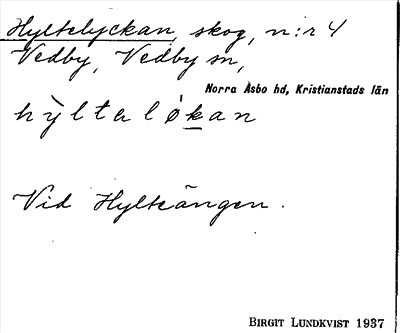 Hyltelyckan, skog, n:r 4
Vedby, Vedby sn,
Norra Åsbo hd, Kristianstads län
h ỳ l t a l ǿ k a n
Vid Hylteängen.
BIRGIT LUNDKVIST 1937